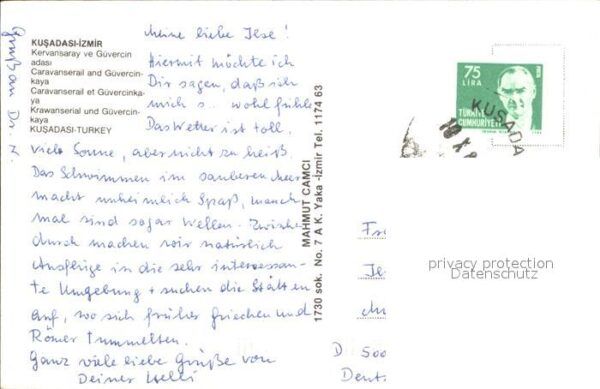 Gruß an Dr. H.
KUŞADASI-İZMİR
Kervansaray ve Güvercin
adası
Caravanserail and Güvercin-
kaya
Caravanserail et Güvercinka-
ya
Krawanserial und Güvercin-
kaya
KUŞADASI-TURKEY
Meine liebe Ilse!
Hiermit möchte ich
Dir sagen, daß ich
mich s.. wohl fühle
Das Wetter ist toll,
viel Sonne, aber nicht zu heiß.
Das Schwimmen im sauberen Meer
macht unheimlich Spaß, manch
mal sind sogar Wellen. Zwischen
durch machen wir natürlich
Ausflüge in die sehr interessan-
te Umgebung + suchen die Stätten
auf, wo sich früher Griechen und
Römer tummelten.
Ganz viele liebe Grüße von
Deiner Helli
MAHMUT CAMCI
1730 sok. No. 7 A K. Yaka -İzmir Tel. 1174 63
75
LİRA
TÜRKİYE
CUMHURİYETİ
KUŞADA
Fr
D 500
Deut
privacy protection
Datenschutz